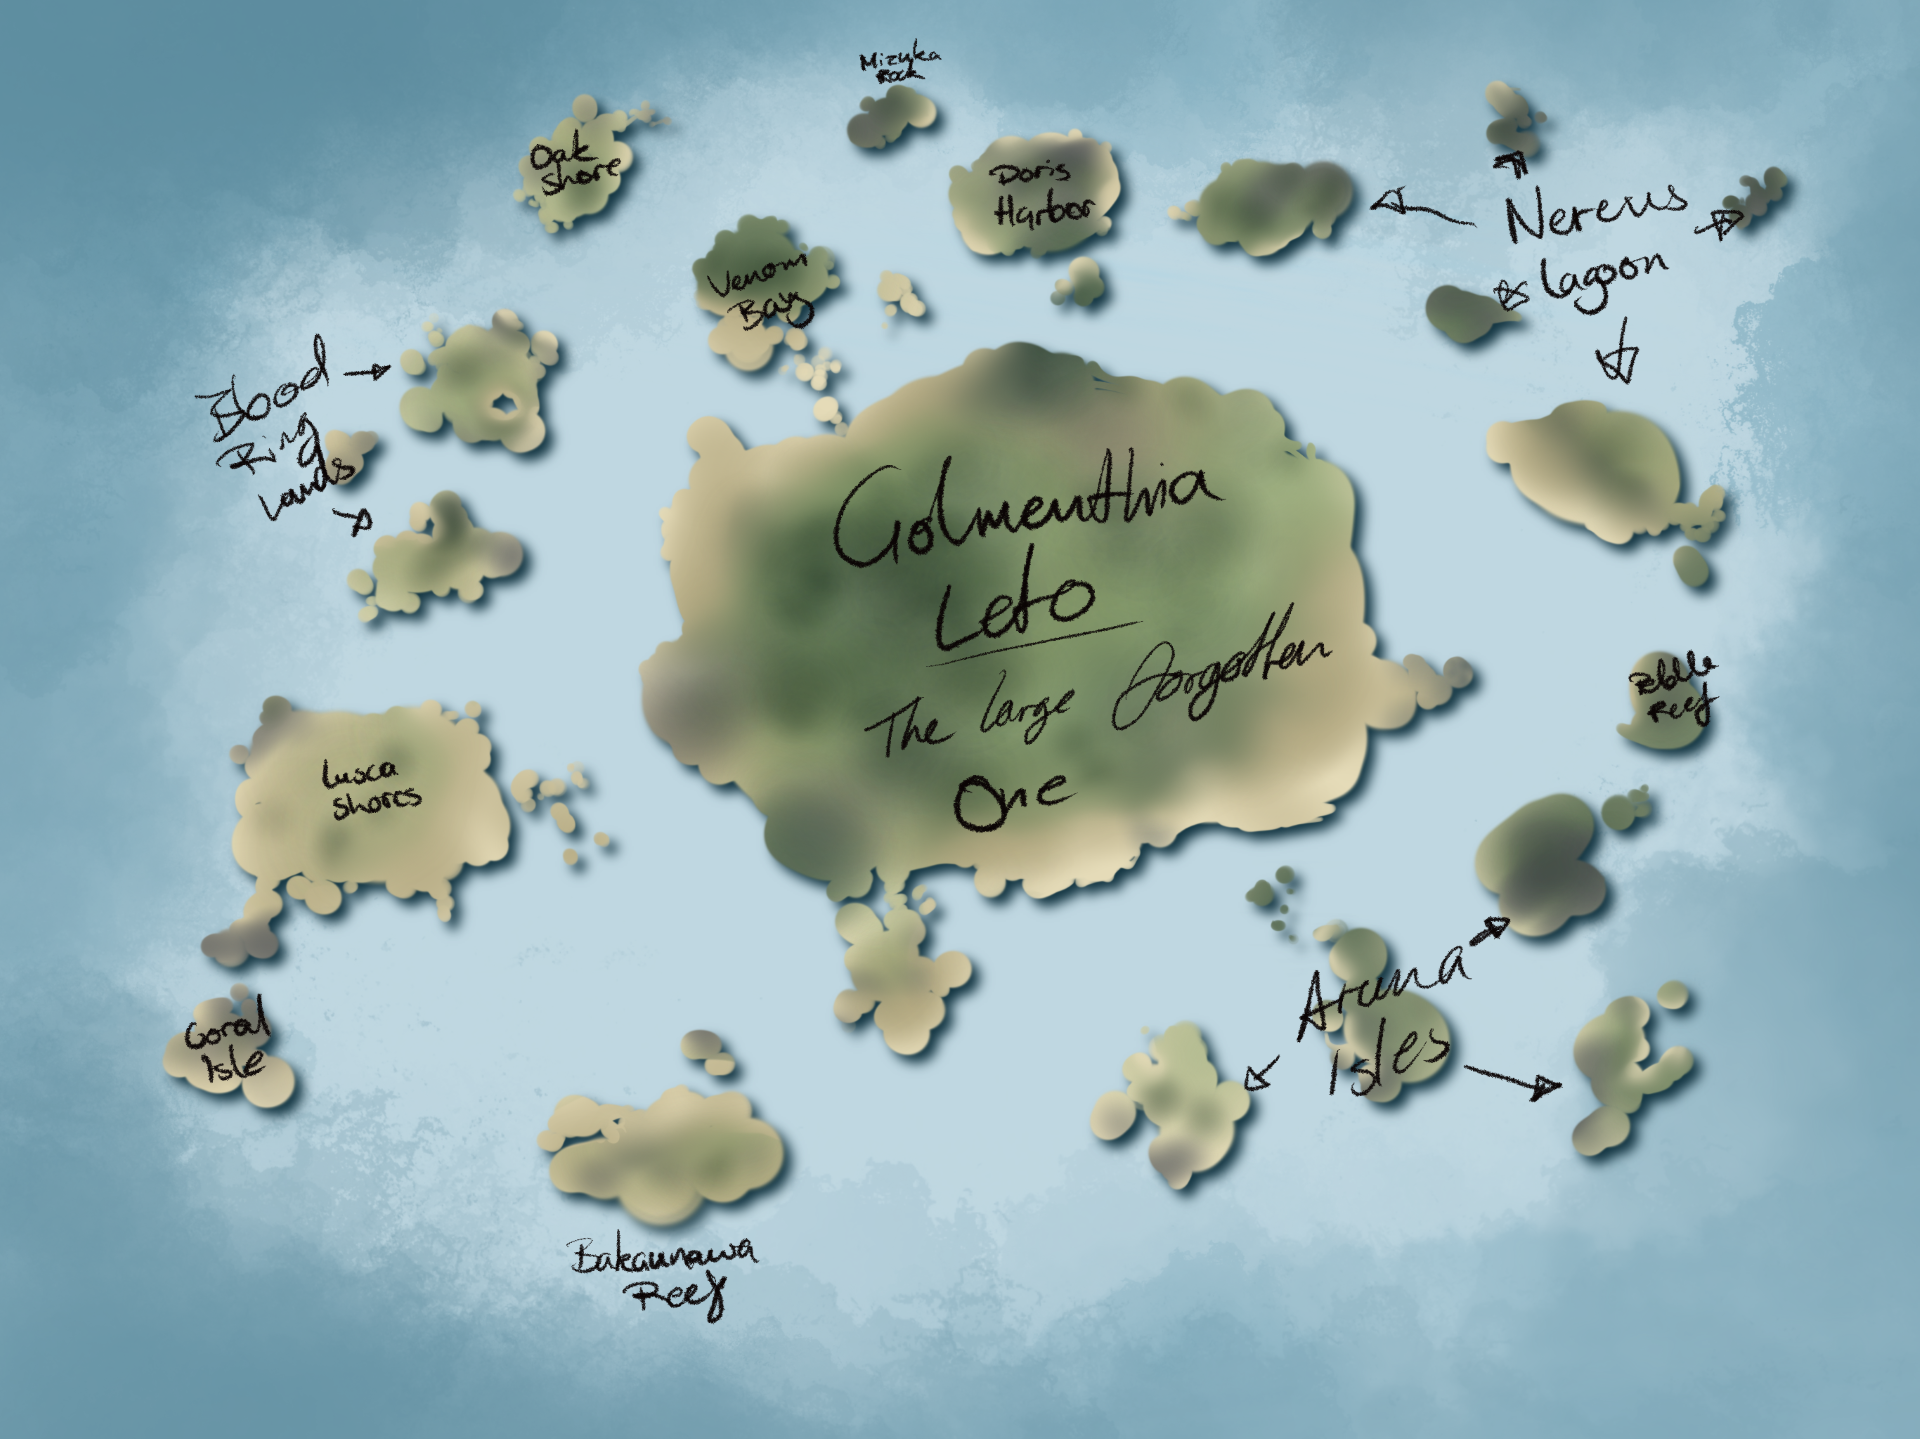 Mizuka
Rock
Oak
Shore
Doris
Harbor
Nereus
Lagoon
Venom
Bay
Blood
Ring
Lands
Golmenthia
Leto
The large forgotten
One
Reef
Lusca
Shores
Aruna
Isles
Goral
Isle
Bakaunawa
Reef